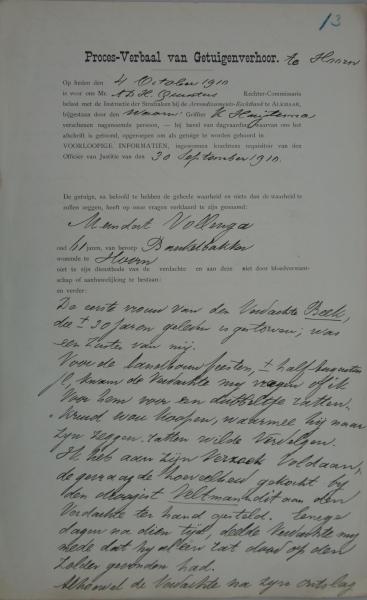 13
Proces-Verbaal van Getuigenverhoor. te Hoorn
Op heden den 4 October 1910
is voor ons Mr. Rechter-Commissaris
belast met de Instructie der Strafzaken bij de Arrondissements-Rechtbank te ALKMAAR,
bijgestaan door den Griffier
verschenen nagenoemde persoon, — bij bevel van dagvaarding waarvan ons het
afschrift is getoond, opgeroepen om als getuige te worden gehoord in
VOORLOOPIGE INFORMATIËN, ingewonnen krachtens requisitoir van den
Officier van Justitie van den 30 September 1910.
De getuige, na beloofd te hebben de geheele waarheid en niets dan de waarheid te
zullen zeggen, heeft op onze vragen verklaard te zijn genaamd:
Meindert Vollenga
oud 61 jaren, van beroep Banketbakker
wonende te Hoorn
niet te zijn dienstbode van de verdachte en aan deze niet door bloedverwant-
schap of aanhuwelijking te bestaan:
en verder:
De eerste vrouw van den Verdachte Beek,
die ± 30 jaren geleden is gestorven, was
een zuster van mij.
Voor de landbouwfeesten, ± half Augustus
kwam de Verdachte mij vragen of ik
voor hem voor een dubbeltje ratten-
kruid wou koopen, waarmee hij naar
zijn zeggen ratten wilde verdelgen.
Ik heb aan zijn verzoek voldaan,
de gevraagde hoeveelheid gekocht bij
den drogist Veltman & dit aan den
Verdachte ter hand gesteld. Eenige
dagen na dien tijd, deelde Verdachte mij
mede dat hij al een rat dood op den
zolder gevonden had.
Alhoewel de Verdachte na zijn ontslag